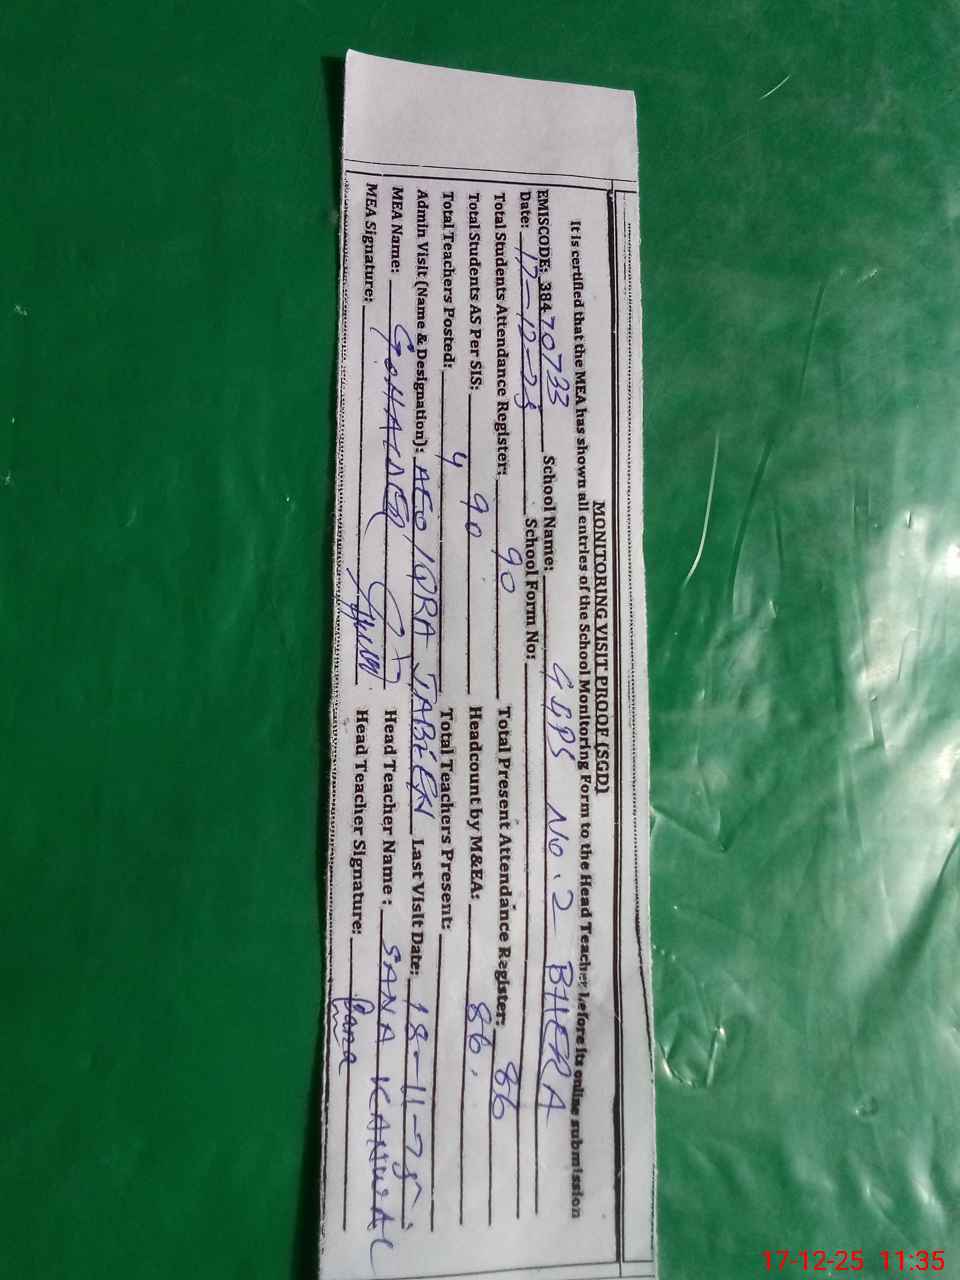 MONITORING VISIT PROOF (SGD)
It is certified that the MEA has shown all entries of the School Monitoring Form to the Head Teacher before its online submission
EMISCODE: 38470733 School Name: GGPS No. 2 BHERA
Date: 17-12-25 School Form No:
Total Students Attendance Register: 90 Total Present Attendance Register: 86
Total Students AS Per SIS: 90 Headcount by M&EA: 86.
Total Teachers Posted: 4 Total Teachers Present:
Admin Visit (Name & Designation): AEO IQRA JABEEN Last Visit Date: 18-11-25
MEA Name: Head Teacher Name: SANA KANWAL
MEA Signature: Head Teacher Signature: Sana
17-12-25 11:35